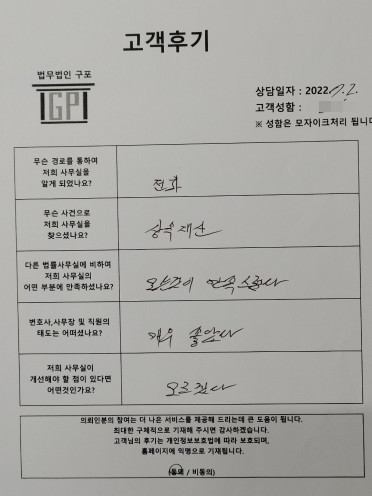 고객후기
법무법인 구포
GP
상담일자 : 2022. 7. 2.
고객성함 :
※ 성함은 모자이크처리 됩니다
무슨 경로를 통하여
저희 사무실을
알게 되었나요?
전화
무슨 사건으로
저희 사무실을
찾으셨나요?
상속재산
다른 법률사무실에 비하여
저희 사무실의
어떤 부분에 만족하셨나요?
만족스럽다
변호사,사무장 및 직원의
태도는 어떠셨나요?
매우 좋았다
저희 사무실이
개선해야 할 점이 있다면
어떤것인가요?
모르겠다
의뢰인분의 참여는 더 나은 서비스를 제공해 드리는데 큰 도움이 됩니다.
최대한 구체적으로 기재해 주시면 감사하겠습니다.
고객님의 후기는 개인정보보호법에 따라 보호되며,
홈페이지에 익명으로 기재됩니다.
(동의 / 비동의)